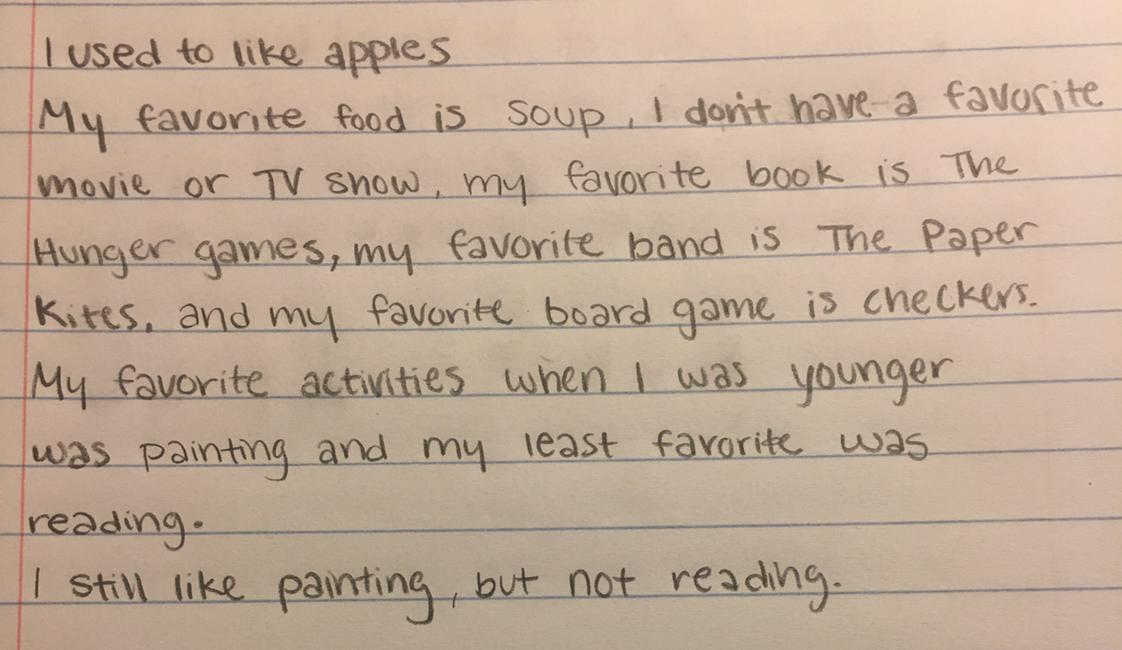 I used to like apples
My favorite food is soup, I don't have a favorite
movie or TV show, my favorite book is The
Hunger games, my favorite band is The Paper
Kites, and my favorite board game is checkers.
My favorite activities when I was younger
was painting and my least favorite was
reading.
I still like painting, but not reading.